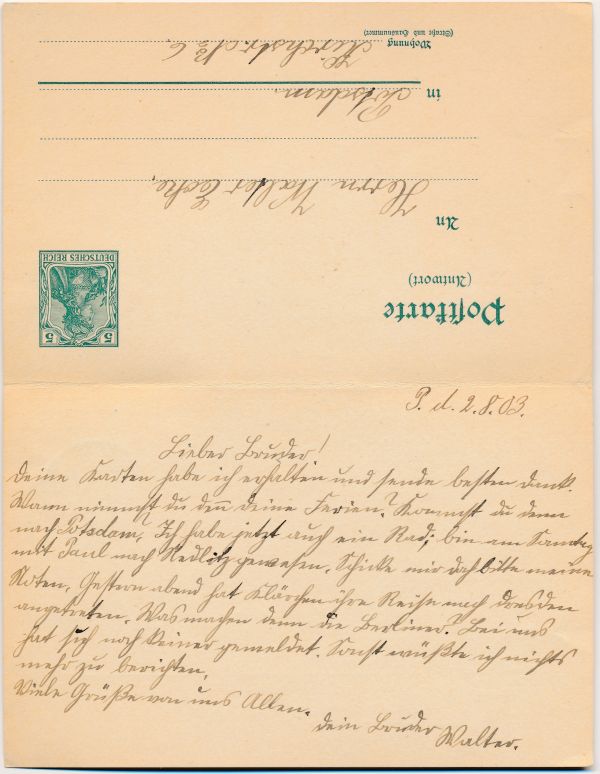 Postkarte
(Antwort)
DEUTSCHES REICH
5 5
An
Herrn Walter
in Potsdam.
Wohnung
(Straße und Hausnummer)
P. d. 2.8.03.
Lieber Bruder!
Deine Karten habe ich erhalten und sende besten Dank.
Wann nimmst du den̄ deine Ferien? Kommst du denn
nach Potsdam? Ich habe jetzt auch ein Rad; bin am Samstag
mit Paul nach Nedlitz gewesen. Schicke mir doch bitte meine
Noten. Gestern abend hat Klärchen ihre Reise nach Dresden
angetreten. Was machen denn die Berliner? Bei uns
hat sich noch Keiner gemeldet. Sonst wüßte ich nichts
mehr zu berichten.
Viele Grüße von uns Allen.
Dein Bruder Walter.